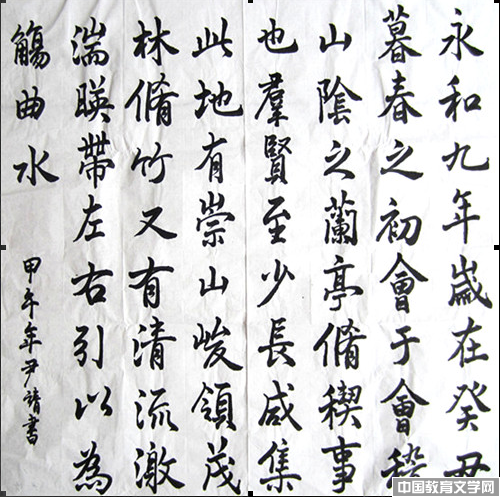 永和九年歲在癸丑
暮春之初會于會稽
山陰之蘭亭脩稧事
也羣賢至少長咸集
此地有崇山峻領茂
林脩竹又有清流激
湍暎帶左右引以為
觴曲水
甲午年尹靖書
中国教育文学网